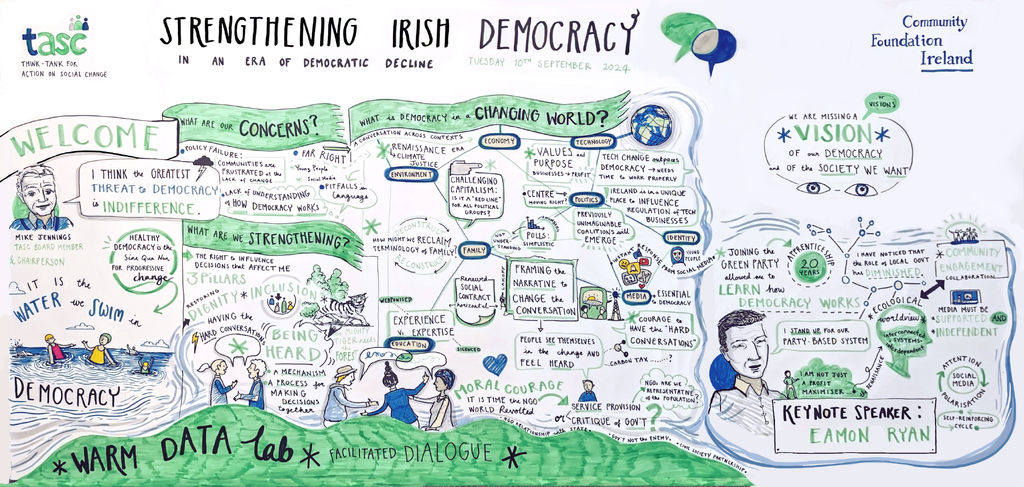 tasc
THINK-TANK FOR
ACTION ON SOCIAL CHANGE
STRENGTHENING IRISH DEMOCRACY
IN AN ERA OF DEMOCRATIC DECLINE
TUESDAY 10TH SEPTEMBER 2024
Community
Foundation
Ireland
WELCOME
I THINK THE GREATEST
THREAT to DEMOCRACY
is INDIFFERENCE.
MIKE JENNINGS
TASC BOARD MEMBER
& CHAIRPERSON
HEALTHY
DEMOCRACY is the
Sine Qua Non
FOR PROGRESSIVE
change
IT IS the
WATER we SWIM in
DEMOCRACY
WHAT ARE OUR CONCERNS?
POLICY FAILURE:
COMMUNITIES are
FRUSTRATED at the
LACK OF CHANGE
FAR RIGHT
Young People
Social Media
LACK of UNDERSTANDING
of HOW DEMOCRACY WORKS
PITFALLS in
Language
WHAT ARE WE STRENGTHENING?
THE RIGHT to INFLUENCE
DECISIONS that AFFECT ME
3 PILLARS
RESTORING
DIGNITY * INCLUSION
HAVING the
HARD CONVERSATIONS
BEING
HEARD
A MECHANISM
a PROCESS for
MAKING
DECISIONS
together
TIGER needs
the
WHAT is DEMOCRACY in a CHANGING WORLD?
A CONVERSATION ACROSS CONTEXTS
RENAISSANCE ERA
+ CLIMATE
JUSTICE
ENVIRONMENT
ECONOMY
CHALLENGING
CAPITALISM:
IS it A "RED LINE"
FOR ALL POLITICAL
GROUPS?
VALUES and
PURPOSE
BUSINESSES > PROFIT
TECHNOLOGY
TECH CHANGE outpaces
DEMOCRACY → NEEDS
TIME to WORK PROPERLY
CENTRE →
MOVING RIGHT?
POLITICS
IRELAND is in a UNIQUE
PLACE to INFLUENCE
REGULATION of TECH
BUSINESSES
PREVIOUSLY
UNIMAGINABLE
COALITIONS will
EMERGE
IDENTITY
YOUNG
PEOPLE
FROM SOCIAL MEDIA
DECONSTRUCT
HOW MIGHT WE RECLAIM
TERMINOLOGY of FAMILY?
RECONSTRUCT
FAMILY
NOT
UNDER-
STANDING
POLLS:
SIMPLISTIC
Renewed
SOCIAL
CONTRACT
horizontal
FRAMING the
NARRATIVE to
CHANGE the
CONVERSATION
MEDIA
= ESSENTIAL to
DEMOCRACY
WEAPONISED
EXPERIENCE
is EXPERTISE
EDUCATION
SILENCED
COURAGE to
HAVE the "HARD
CONVERSATIONS"
PEOPLE SEE THEMSELVES
in the CHANGE and
FEEL HEARD
CARBON TAX.......?
MORAL COURAGE
IT IS TIME the NGO
WORLD Revolted
SERVICE PROVISION
or CRITIQUE of GOV'T
?
NGO: ARE WE
REPRESENTATIVE
of the POPULATION?
NGO RELATIONSHIP with STATE
GOV'T NOT the ENEMY.
CIVIL SOCIETY PARTNERSHIP
*WARM DATA Lab*
FACILITATED DIALOGUE *
or
VISIONS
WE ARE MISSING A
*VISION*
OF our DEMOCRACY
and OF the SOCIETY WE WANT
JOINING the
GREEN PARTY
allowed me to
LEARN how
DEMOCRACY WORKS
APPRENTICESHIP
20
YEARS
I HAVE NOTICED THAT
the ROLE of LOCAL GOV.
HAS DIMINISHED.
COMMUNITY
ENGAGEMENT
COLLABORATION
MEDIA MUST BE
SUPPORTED AND
INDEPENDENT
I STAND UP for OUR
PARTY-BASED SYSTEM
ECOLOGICAL
worldview
Interconnected
SYSTEMS
I AM NOT JUST
a PROFIT
MAXIMISER
RENAISSANCE
ATTENTION
SOCIAL
MEDIA
POLARISATION
SELF-REINFORCING
CYCLE
KEYNOTE SPEAKER:
EAMON RYAN